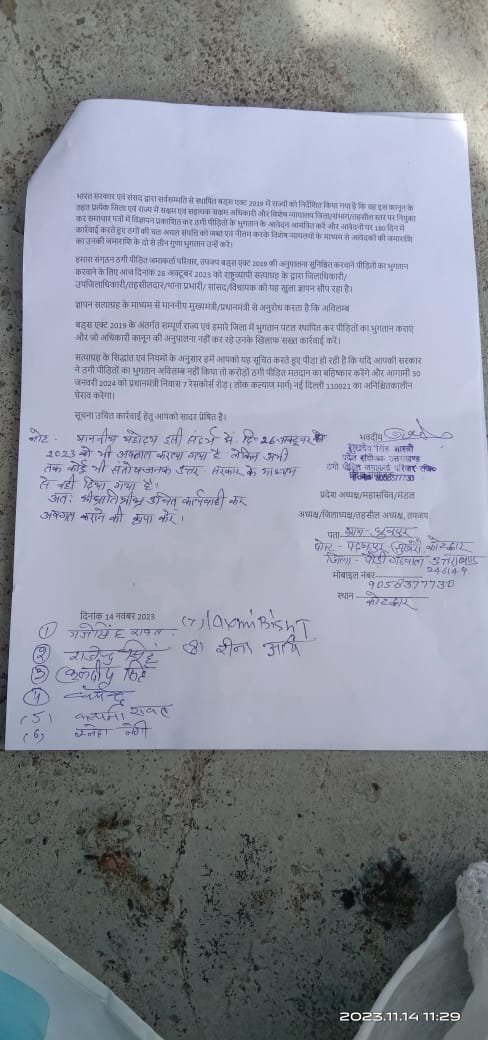 भारत सरकार एवं संसद द्वारा सर्वसम्मति से स्थापित बड्स एक्ट 2019 में राज्यों को निर्देशित किया गया है कि वह इस कानून के
तहत प्रत्येक जिला एवं राज्य में सक्षम एवं सहायक सक्षम अधिकारी और विशेष न्यायालय जिला/संभाग/तहसील स्तर पर नियुक्त
कर समाचार पत्रों में विज्ञापन प्रकाशित कर ठगी पीड़ितों के भुगतान के आवेदन आमंत्रित करें और आवेदनों पर 180 दिन में
कार्रवाई करते हुए ठगों की चल अचल संपत्ति को जब्त एवं नीलाम करके विशेष न्यायलयों के माध्यम से आवेदकों की जमाराशि
का उनकी जमाराशि के दो से तीन गुणा भुगतान उन्हें करें।
हमारा संगठन ठगी पीड़ित जमाकर्ता परिवार, तपजप बड्स एक्ट 2019 की अनुपालना सुनिश्चित करवाने पीड़ितों का भुगतान
करवाने के लिए आज दिनांक 26 अक्टूबर 2023 को राष्ट्रव्यापी सत्याग्रह के द्वारा जिलाधिकारी/
उपजिलाधिकारी/तहसीलदार/थाना प्रभारी/ सांसद/विधायक को यह खुला ज्ञापन सौंप रहा है।
ज्ञापन सत्याग्रह के माध्यम से माननीय मुख्यमंत्री/प्रधानमंत्री से अनुरोध करता है कि अविलम्ब
बड्स एक्ट 2019 के अंतर्गत सम्पूर्ण राज्य एवं हमारे जिला में भुगतान पटल स्थापित कर पीड़ितों का भुगतान कराएं
और जो अधिकारी कानून की अनुपालना नहीं कर रहे उनके खिलाफ सख्त कार्रवाई करें।
सत्याग्रह के सिद्धांत एवं नियमों के अनुसार हमे आपको यह सूचित करते हुए पीड़ा हो रही है कि यदि आपकी सरकार
ने ठगी पीड़ितों का भुगतान अविलम्ब नहीं किया तो करोड़ों ठगी पीड़ित मतदान का बहिष्कार करेंगे और आगामी 30
जनवरी 2024 को प्रधानमंत्री निवास 7 रेसकोर्स रोड़ ( लोक कल्याण मार्ग) नई दिल्ली 110021 का अनिश्चितकालीन
घेराव करेगा।
सूचना उचित कार्रवाई हेतु आपको सादर प्रेषित है।
नोट - माननीय महोदय इसी संदर्भ में दि० 26 अक्टूबर
2023 को भी अवगत कराया गया है लेकिन अभी
तक कोई भी संतोषजनक उत्तर सरकार के माध्यम
से नहीं दिया गया है।
अतः उचित कार्यवाही कर
अवगत कराने की कृपा करें।
भवदीय
सुखदेव सिंह शास्त्री
प्रदेश संयोजक उत्तराखण्ड
ठगी पीड़ित जमाकर्ता परिवार
प्रदेश अध्यक्ष/महासचिव/मंडल
अध्यक्ष/जिलाध्यक्ष/तहसील अध्यक्ष, तपजप
पता ग्राम-
पोस्ट - पदमपुर (सुखरो) कोटद्वार
जिला - पौड़ी गढ़वाल उत्तराखण्ड
246149
मोबाइल नंबर 9056377730
स्थान कोटद्वार
दिनांक 14 नवंबर 2023
(7) Laxmi Bisht
(1) रावत
(8) रीना आर्य
(2) राजेन्द्र सिंह
(3) कुलदीप सिंह
(4)
(5) रावत
(6) स्नेहा नेगी
2023.11.14 11:29